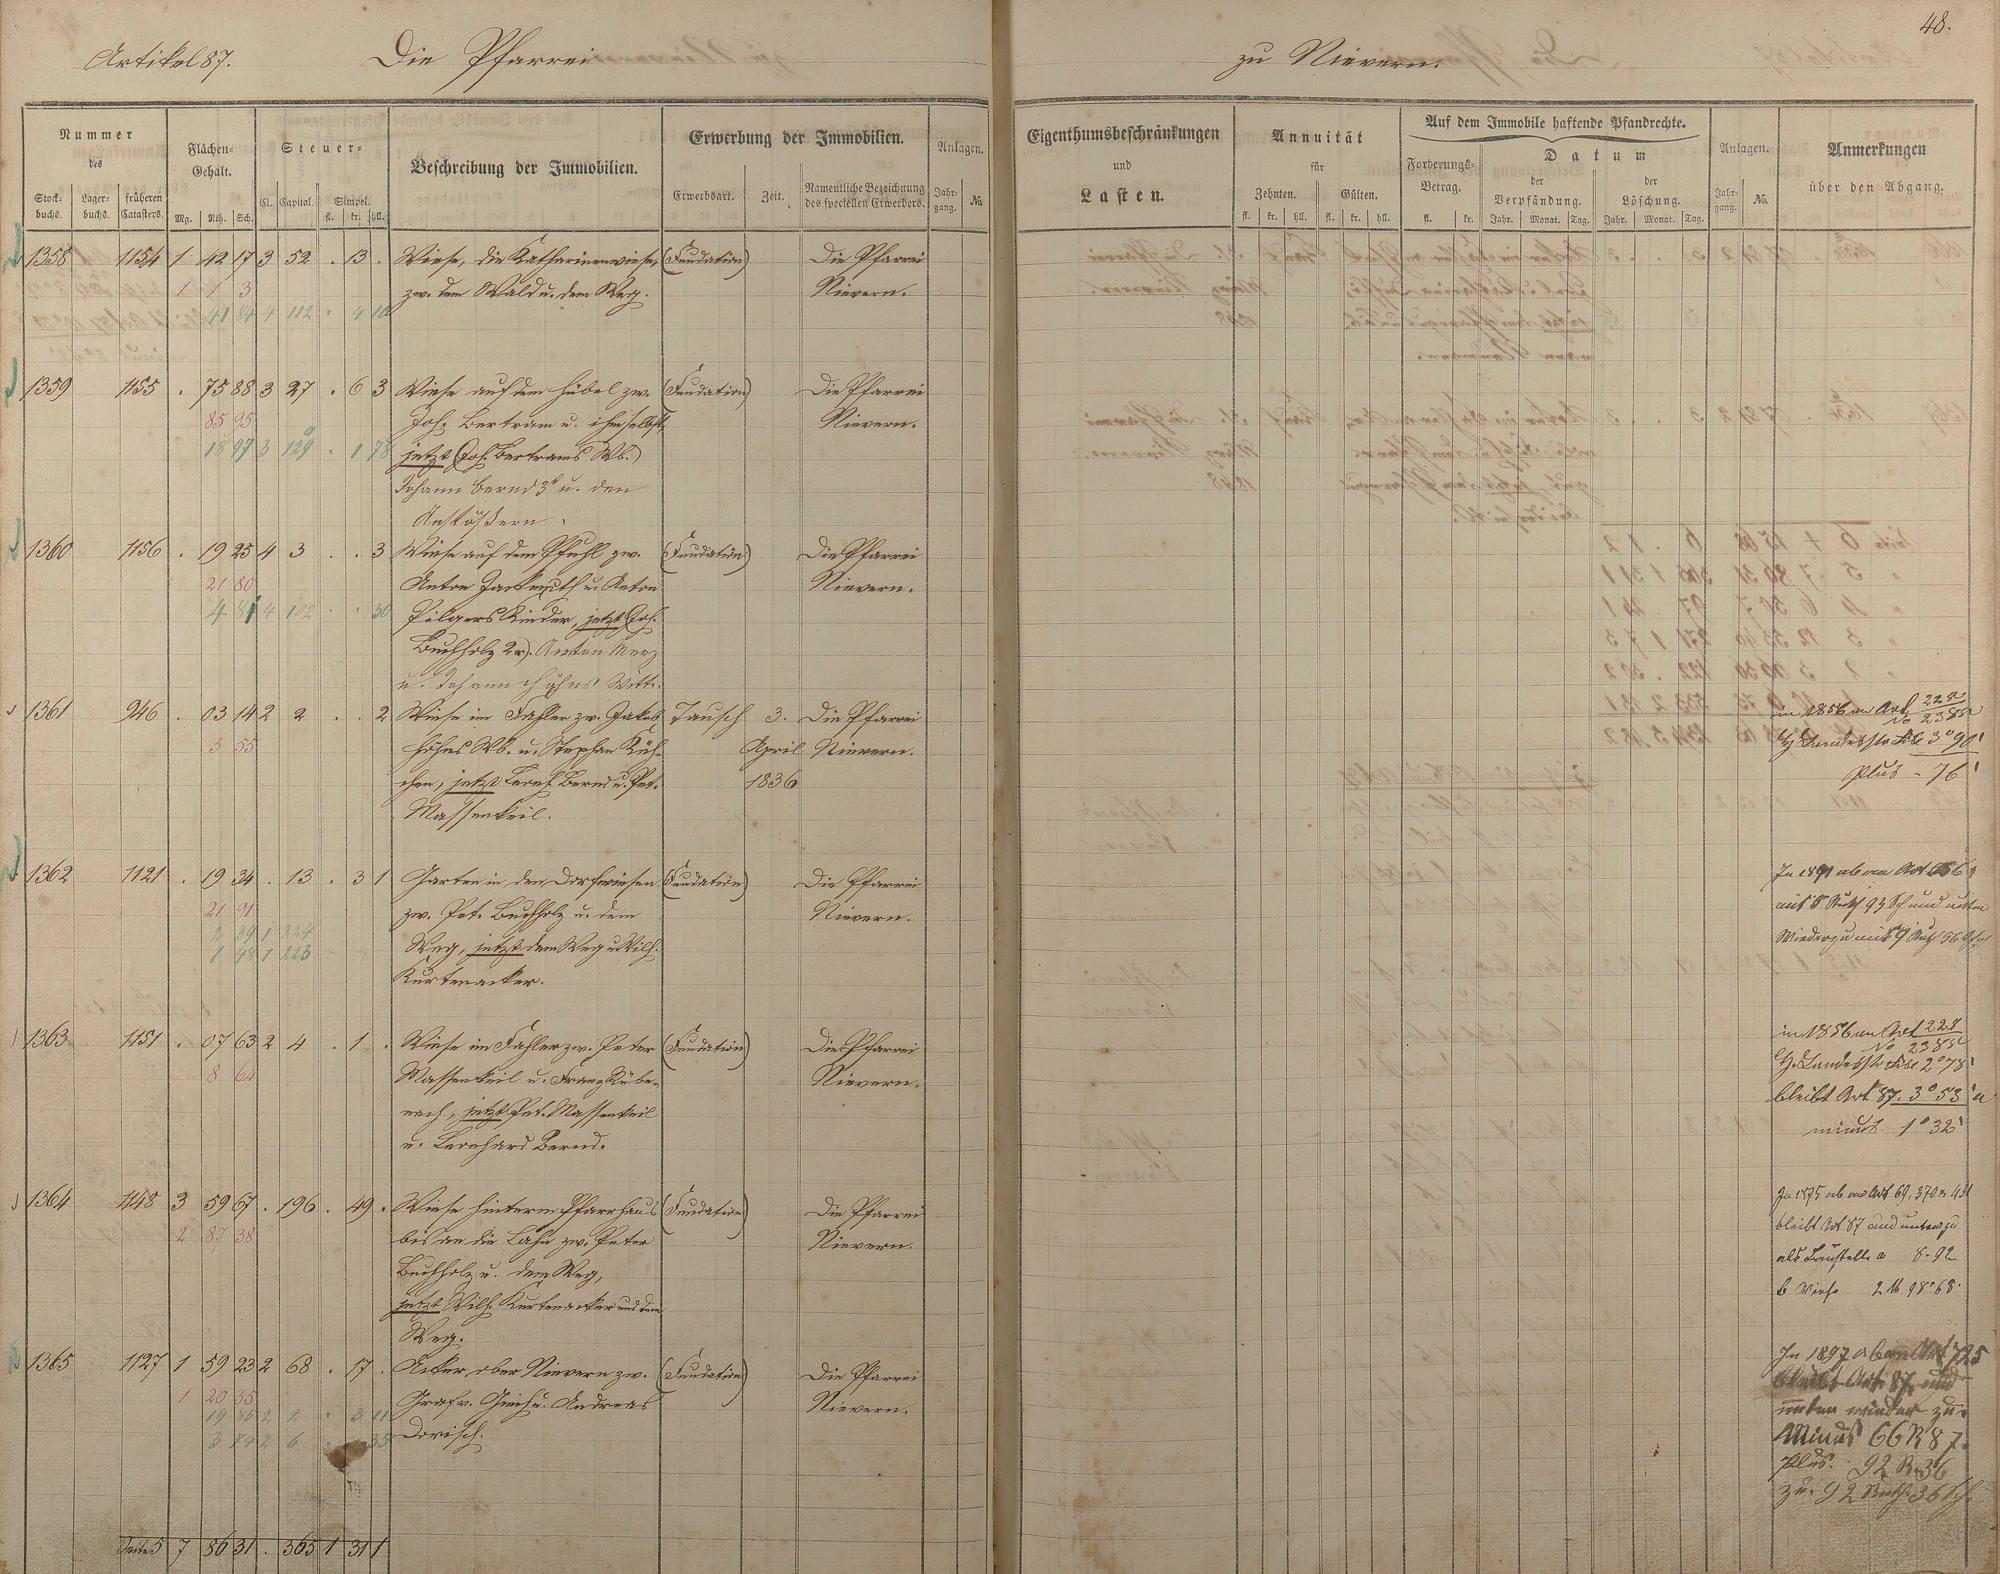 48.
Artikel 87. Die Pfarrei zu Nievern.
Nummer des
Stock-buchs. Lager-buchs. früheren Catasters.
Flächen-Gehalt.
Mg. Rth. Sch.
Steuer-
Cl. Capital. Simpel.
fl. kr. hll.
Beschreibung der Immobilien.
Erwerbung der Immobilien.
Erwerbsart. Zeit. Namentliche Bezeichnung des speciellen Erwerbers.
Anlagen.
Jahr-gang. No.
Eigenthumsbeschränkungen
und
Lasten.
Annuität
für
Zehnten. Gülten.
fl. kr. hll. fl. kr. hll.
Auf dem Immobile haftende Pfandrechte.
Forderungs-Betrag.
fl. kr.
Datum
der Verpfändung. der Löschung.
Jahr. Monat. Tag. Jahr. Monat. Tag.
Anlagen.
Jahr-gang. No.
Anmerkungen
über den Abgang.
1358 1154 1 42 17 3 52 . 13 . Wiese, die Katharinenwiese, (Fundation) Die Pfarrei
1 1 3 zw. dem Wald u. dem Weg. Nievern.
41 84 4 112 . 4 10
1359 1155 . 75 88 3 27 . 6 3 Wiese auf dem Hübel zw. (Fundation) Die Pfarrei
85 95 Joh. Bertram u. ihm selbst, Nievern.
18 97 3 129 . 1 78 jetzt (Joh. Bertrams Wb.)
Johann Bernd 3r u. den
Anstößern.
1360 1156 . 19 25 4 3 . . 3 Wiese auf dem Pfuhl zw. (Fundation) Die Pfarrei
21 80 Anton u. Anton Nievern.
4 81 4 102 . . 30 Pilgers Kinder, jetzt (Joh.
Buchholz 2r). Anton Merz
u. Johann Wittw.
1361 946 . 03 14 2 2 . . 2 Wiese im Fahler zw. Jakob Tausch 3. Die Pfarrei
3 55 Höhns Wb. u. Stephan Küh- April Nievern.
chen, jetzt Leonh. Bernd u. Pet. 1836
Massenkeil.
in 1856 an Art. 228
No 2388
Landesstr. 3° 90'
Plus - 76'
1362 1121 . 19 34 . 13 . 3 1 Garten in den Dorfwiesen (Fundation) Die Pfarrei
21 91 zw. Pet. Buchholz u. dem Nievern.
2 89 1 324 Weg, jetzt dem Weg u. Wilh.
1 48 1 223 Kurtenacker.
In 1891 ab an Art
mit 5 Ruth 93 Sch und unten
Wieder zu mit 9 Ruth 56
1363 1151 . 07 63 2 4 . 1 . Wiese im Fahler zw. Peter (Fundation) Die Pfarrei
8 64 Massenkeil u. Franz Rübe- Nievern.
nach, jetzt Pet. Massenkeil
u. Leonhard Bernd.
in 1856 an Art 228
No 2388
Landesstr. 2° 78'
bleibt Art. 87. 3° 53'
minus 1° 32'
1364 1148 3 59 67 . 196 . 49 . Wiese hinterm Pfarrhaus (Fundation) Die Pfarrei
2 87 38 bis an die Lahn zw. Peter Nievern.
Buchholz u. dem Weg,
jetzt Wilh. Kurtenacker und dem
Weg.
In 1875 ab an Art 69, 370 u. 431
bleibt Art 87 und unten zu
als Baustelle a 8.92
b Wiese 2 M 98° 68.
1365 1127 1 59 23 2 68 . 17 . Acker ober Nievern zw. (Fundation) Die Pfarrei
1 20 35 Graf v. u. Andreas Nievern.
19 86 2 2 . 3 11 Dorisch.
3 74 2 6 . 35
In 1897 ab an Art 725
bleibt Art. 87 und
unten wieder zu.
Minus 66 R 87.
Plus. 92 R. 36
zu. 92 Ruth. 36 Sch.
Seite 5 7 86 31 . 365 1 31 1